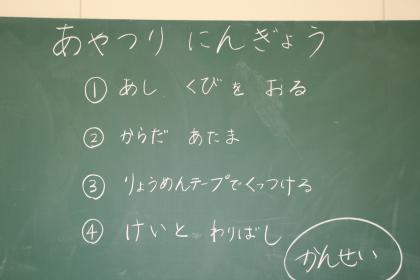 あやつり にんぎょう
① あし くび を おる
② からだ あたま
③ りょうめんテープでくっつける
④ けいと わりばし
かんせい